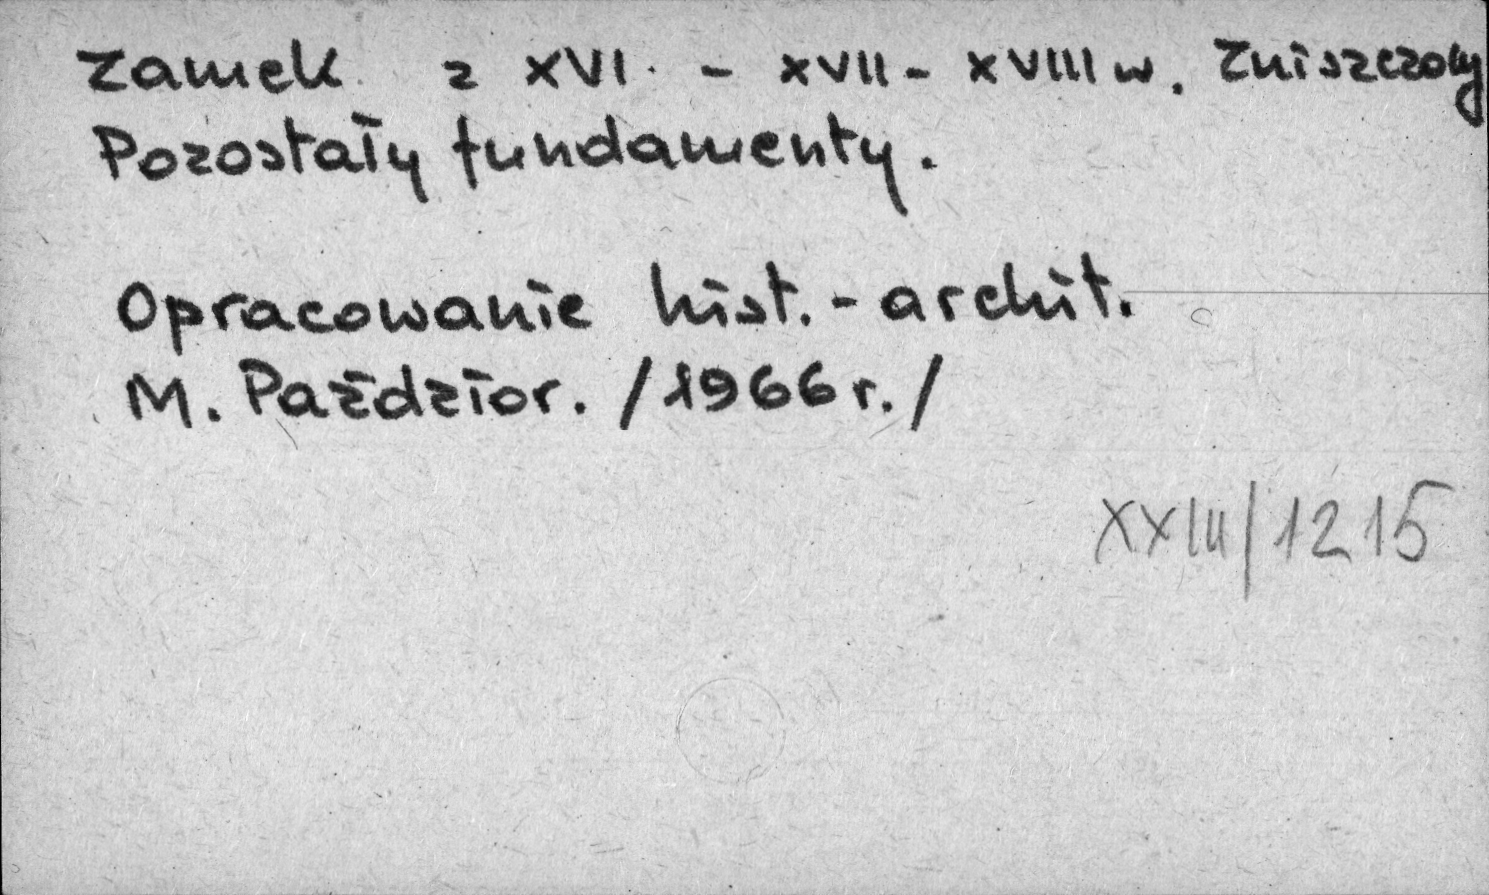 Zamek z XVI. - XVII - XVIII w. Zniszczony
Pozostały fundamenty.
Opracowanie hist. - archit.
M. Paździor. /1966 r./
XXIII/1215